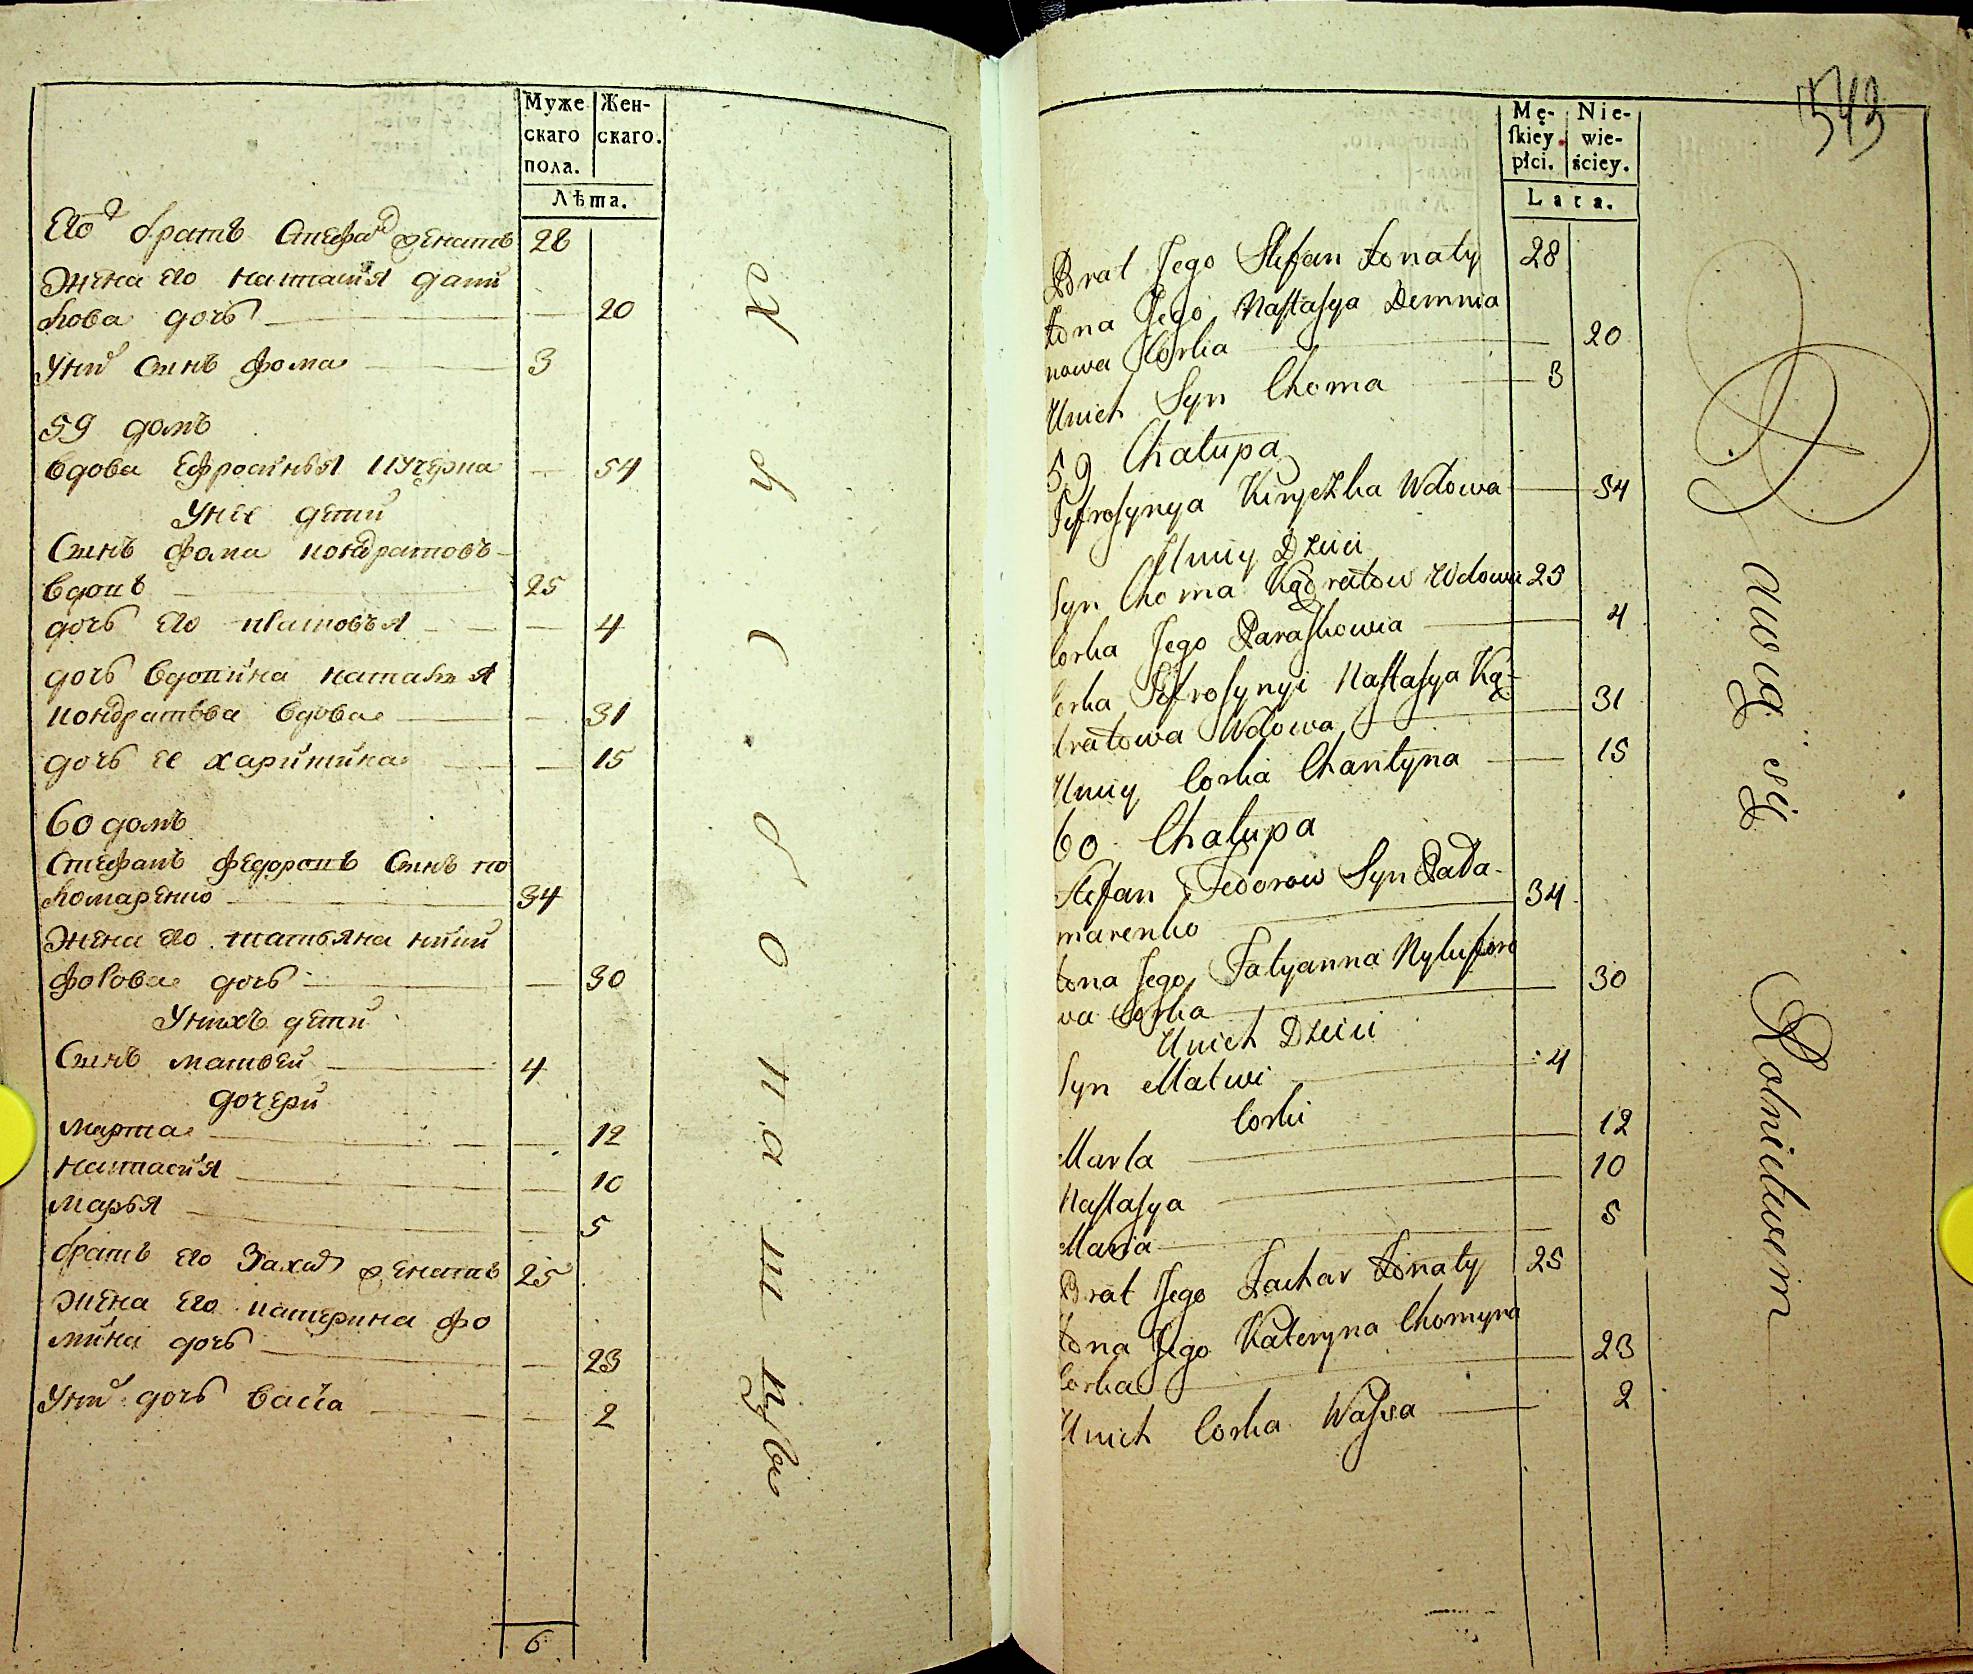 Муже
скаго
пола.
Жен-
скаго.
Лѣта.
Его братъ Стефан женатъ 28
Жена его настасия дани
кова дочь 20
Уни синъ фома 3
59 домъ
вдова Ефросиньѧ 54
Унее дети
Синъ фома кондратовъ
вдовъ 25
дочь его 4
дочь вдовина
кондратова вдова 31
дочь ее харитина 15
60 домъ
Стефанъ федоровъ Синъ по
номаренко 34
Жена его татьяна ники
форова дочь 30
Унихъ дети
Синъ матвей 4
дочери
марта 12
настасия 10
марья 5
братъ его Захар женатъ 25
Жена его катерина фо
мина дочь 23
Уни дочь васса 2
6
543
Mę-
ſkiey
płci.
Nie-
wie-
ściey.
Lata.
Brat Jego Stefan żonaty 28
żona Jego Naſtaſya Demnia
nowa Corka 20
Unich Syn Choma 3
59 Chałupa
Jefroſynya Wdowa 54
Uniey Dzieci
Syn Choma Kądratow Wdowiec 25
Corka Jego Paraſkowia 4
Corka Jefroſynyi Naſtaſya Ką-
dratowa Wdowa 31
Uniey Corka Charityna 15
60 Chałupa
Stefan Fedorow Syn
marenko 34
żona Jego Tatyanna Nykiforo
wa Corka 30
Unich Dzieci
Syn Matwi 4
Corki
Marta 12
Naſtaſya 10
Maria 5
Brat Jego Zachar żonaty 25
żona Jego Kateryna Chomyna
Corka 23
Unich Corka Waſsa 2
Bawią się Rolnictwem